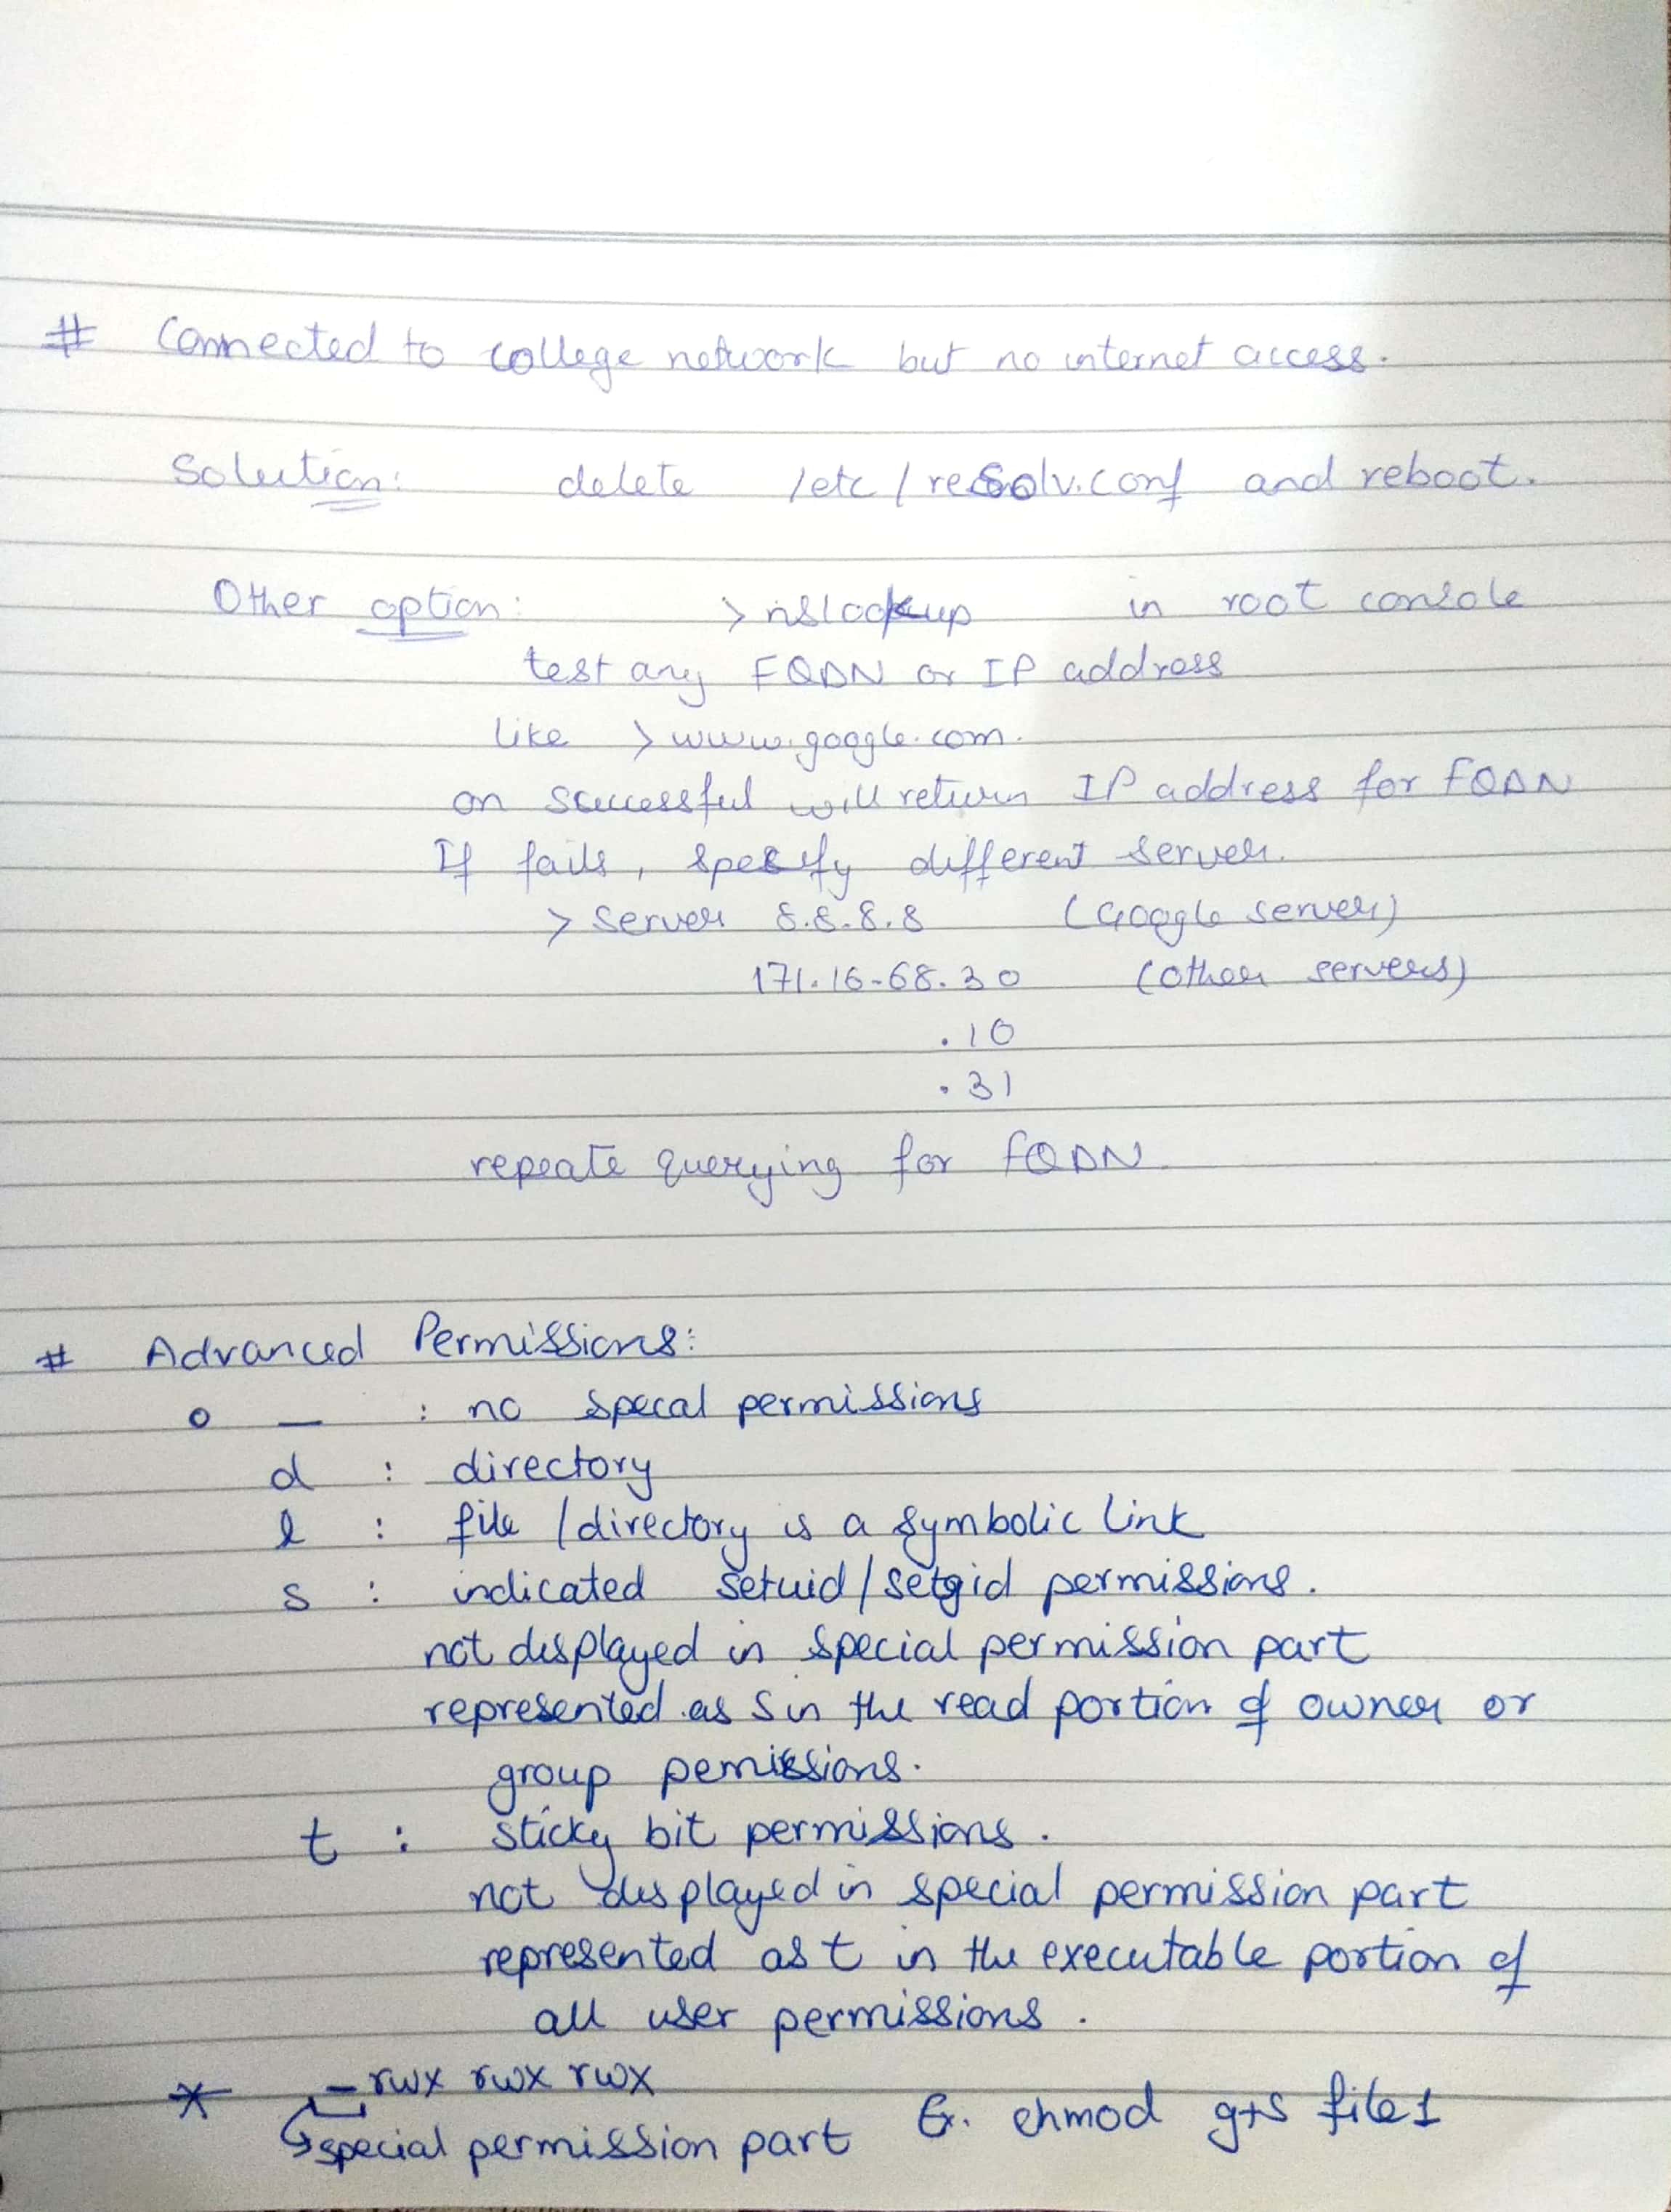 # Connected to college network but no internet access.
Solution: delete /etc/resolv.conf and reboot.
Other option: > nslookup in root console
test any FQDN or IP address
like > www.google.com.
on successful will return IP address for FQDN
If fails, specify different server.
> server 8.8.8.8 (Google server)
171.16.68.30 (other servers)
.10
.31
repeate querying for FQDN.
# Advanced Permissions:
o _ : no specal permissions
d : directory
l : file/directory is a symbolic link
s : indicated setuid/setgid permissions.
not displayed in special permission part
represented as s in the read portion of owner or
group pemissions.
t : sticky bit permissions.
not displayed in special permission part
represented as t in the executable portion of
all user permissions.
* -rwx rwx rwx
special permission part Ex. chmod g+s file1